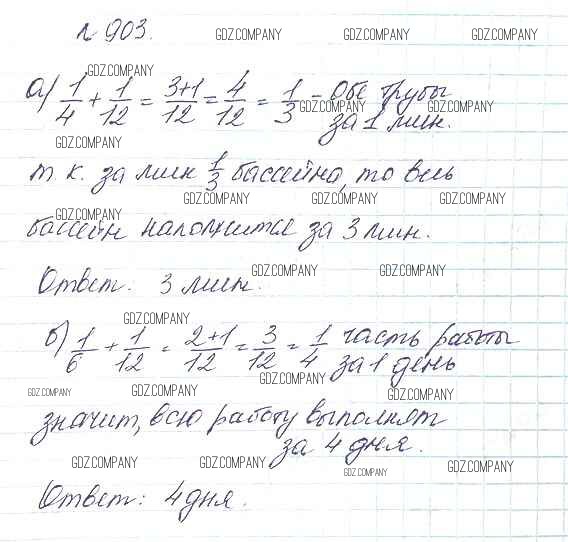 № 903.
GDZ.COMPANY GDZ.COMPANY GDZ.COMPANY
GDZ.COMPANY
а) 1/4 + 1/12 = 3+1/12 = 4/12 = 1/3 - обе трубы
GDZ.COMPANY GDZ.COMPANY
за 1 мин.
GDZ.COMPANY
т.к. за мин 1/3 бассейна, то весь
GDZ.COMPANY GDZ.COMPANY GDZ.COMPANY
GDZ.COMPANY
бассейн наполнится за 3 мин.
GDZ.COMPANY GDZ.COMPANY
Ответ: 3 мин.
GDZ.COMPANY
б) 1/6 + 1/12 = 2+1/12 = 3/12 = 1/4 часть работы
за 1 день
GDZ.COMPANY
GDZ.COMPANY GDZ.COMPANY GDZ.COMPANY
значит, всю работу выполнят
за 4 дня.
GDZ.COMPANY GDZ.COMPANY GDZ.COMPANY GDZ.COMPANY
Ответ: 4 дня.